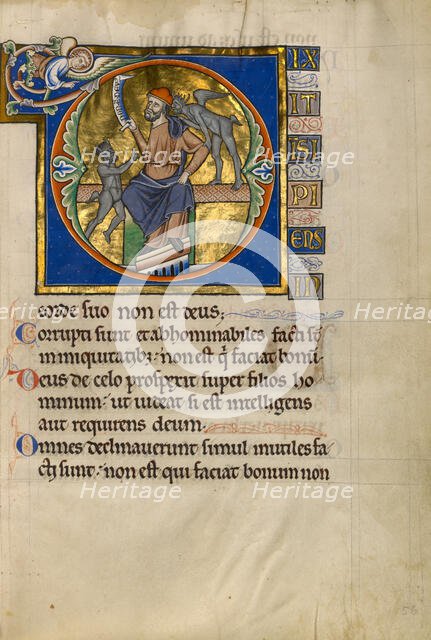 IX
IT
ISI
PI
ENS
IN
corde suo non est deus:
Corrupti sunt et abhominabiles facti st̄
in iniquitatibꝫ: non est q̇ faciat bonū.
Deus de celo prospexit super filios ho
minum: ut uideat si est intelligens
aut requirens deum.
Omnes declinauerunt simul inutiles fa
cti sunt: non est qui faciat bonum non
56
Heritage Images
Heritage Images
Heritage Images